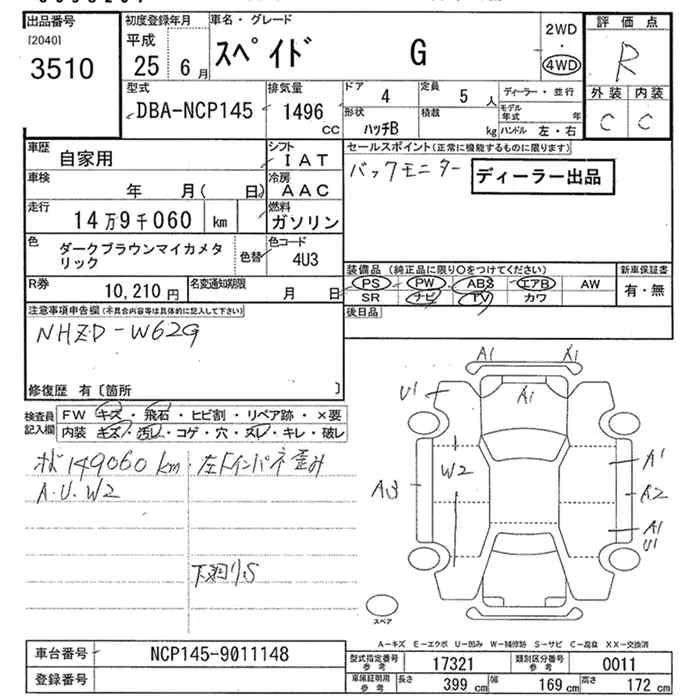 出品番号 初度登録年月 車名・グレード 評価点
[2040] 平成 スペイド G 2WD ・ 4WD R
3510 25年 6月
型式 排気量 ドア 4 定員 5人 ディーラー・並行 外装 内装
DBA-NCP145 1496cc 形状 ハッチB 積載 kg モデル年式 年 C C
ハンドル 左・右
車歴 自家用 シフト IAT セールスポイント(正常に機能するものに限ります)
車検 年 月(日) 冷房 AAC バックモニター ディーラー出品
走行 14万9千060 km 燃料 ガソリン
色 ダークブラウンマイカメタリック 色替 色コード 4U3
R券 10,210円 名変通知期限 月 日
装備品(純正品に限り○をつけてください) 新車保証書
PS PW ABS エアB AW 有・無
SR ナビ TV カワ
後日品
注意事項申告欄(不具合内容等は具体的に記入して下さい)
NHZD-W62G
修復歴 有〔箇所 〕
検査員記入欄 FW キズ・飛石・ヒビ割・リペア跡・×要
内装 キズ・汚レ・コゲ・穴・スレ・キレ・破レ
149060km. 左Fインパネ歪み
A.U.W2
下廻りS
A1 X1
U1 A1
W2 A1
A3 A2
A1
U1
スペア
A-キズ E-エクボ U-凹み W-補修跡 S-サビ C-腐食 XX-交換済
車台番号 NCP145-9011148 型式指定番号 参考 17321 類別区分番号 参考 0011
登録番号 車庫証明用 参考 長さ 399cm 幅 169cm 高さ 172cm